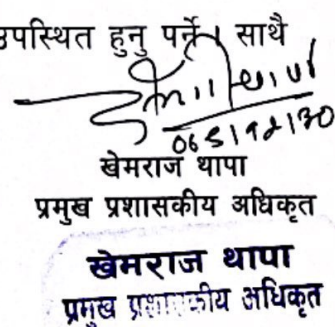 उपस्थित हुनु पर्ने। साथै
खेमराज थापा
प्रमुख प्रशासकीय अधिकृत
खेमराज थापा
प्रमुख प्रशासकीय अधिकृत